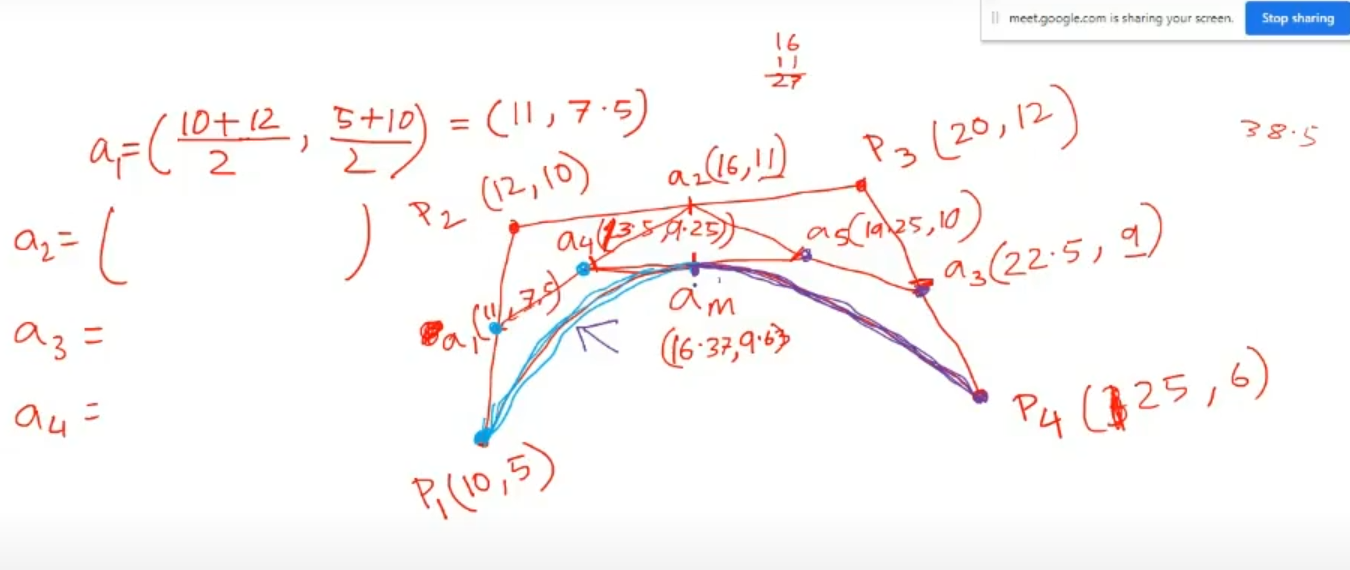 meet.google.com is sharing your screen. Stop sharing
16
11
27
a₁ = (10+12/2, 5+10/2) = (11, 7.5)
38.5
P₃ (20, 12)
a₂ (16, 11)
P₂ (12, 10)
a₂ = ( )
a₄ (13.5, 9.25)
a₅ (19.25, 10)
a₃ (22.5, 9)
a₁ (11, 7.5)
a₃ =
am
(16.37, 9.63)
a₄ =
P₄ (25, 6)
P₁ (10, 5)